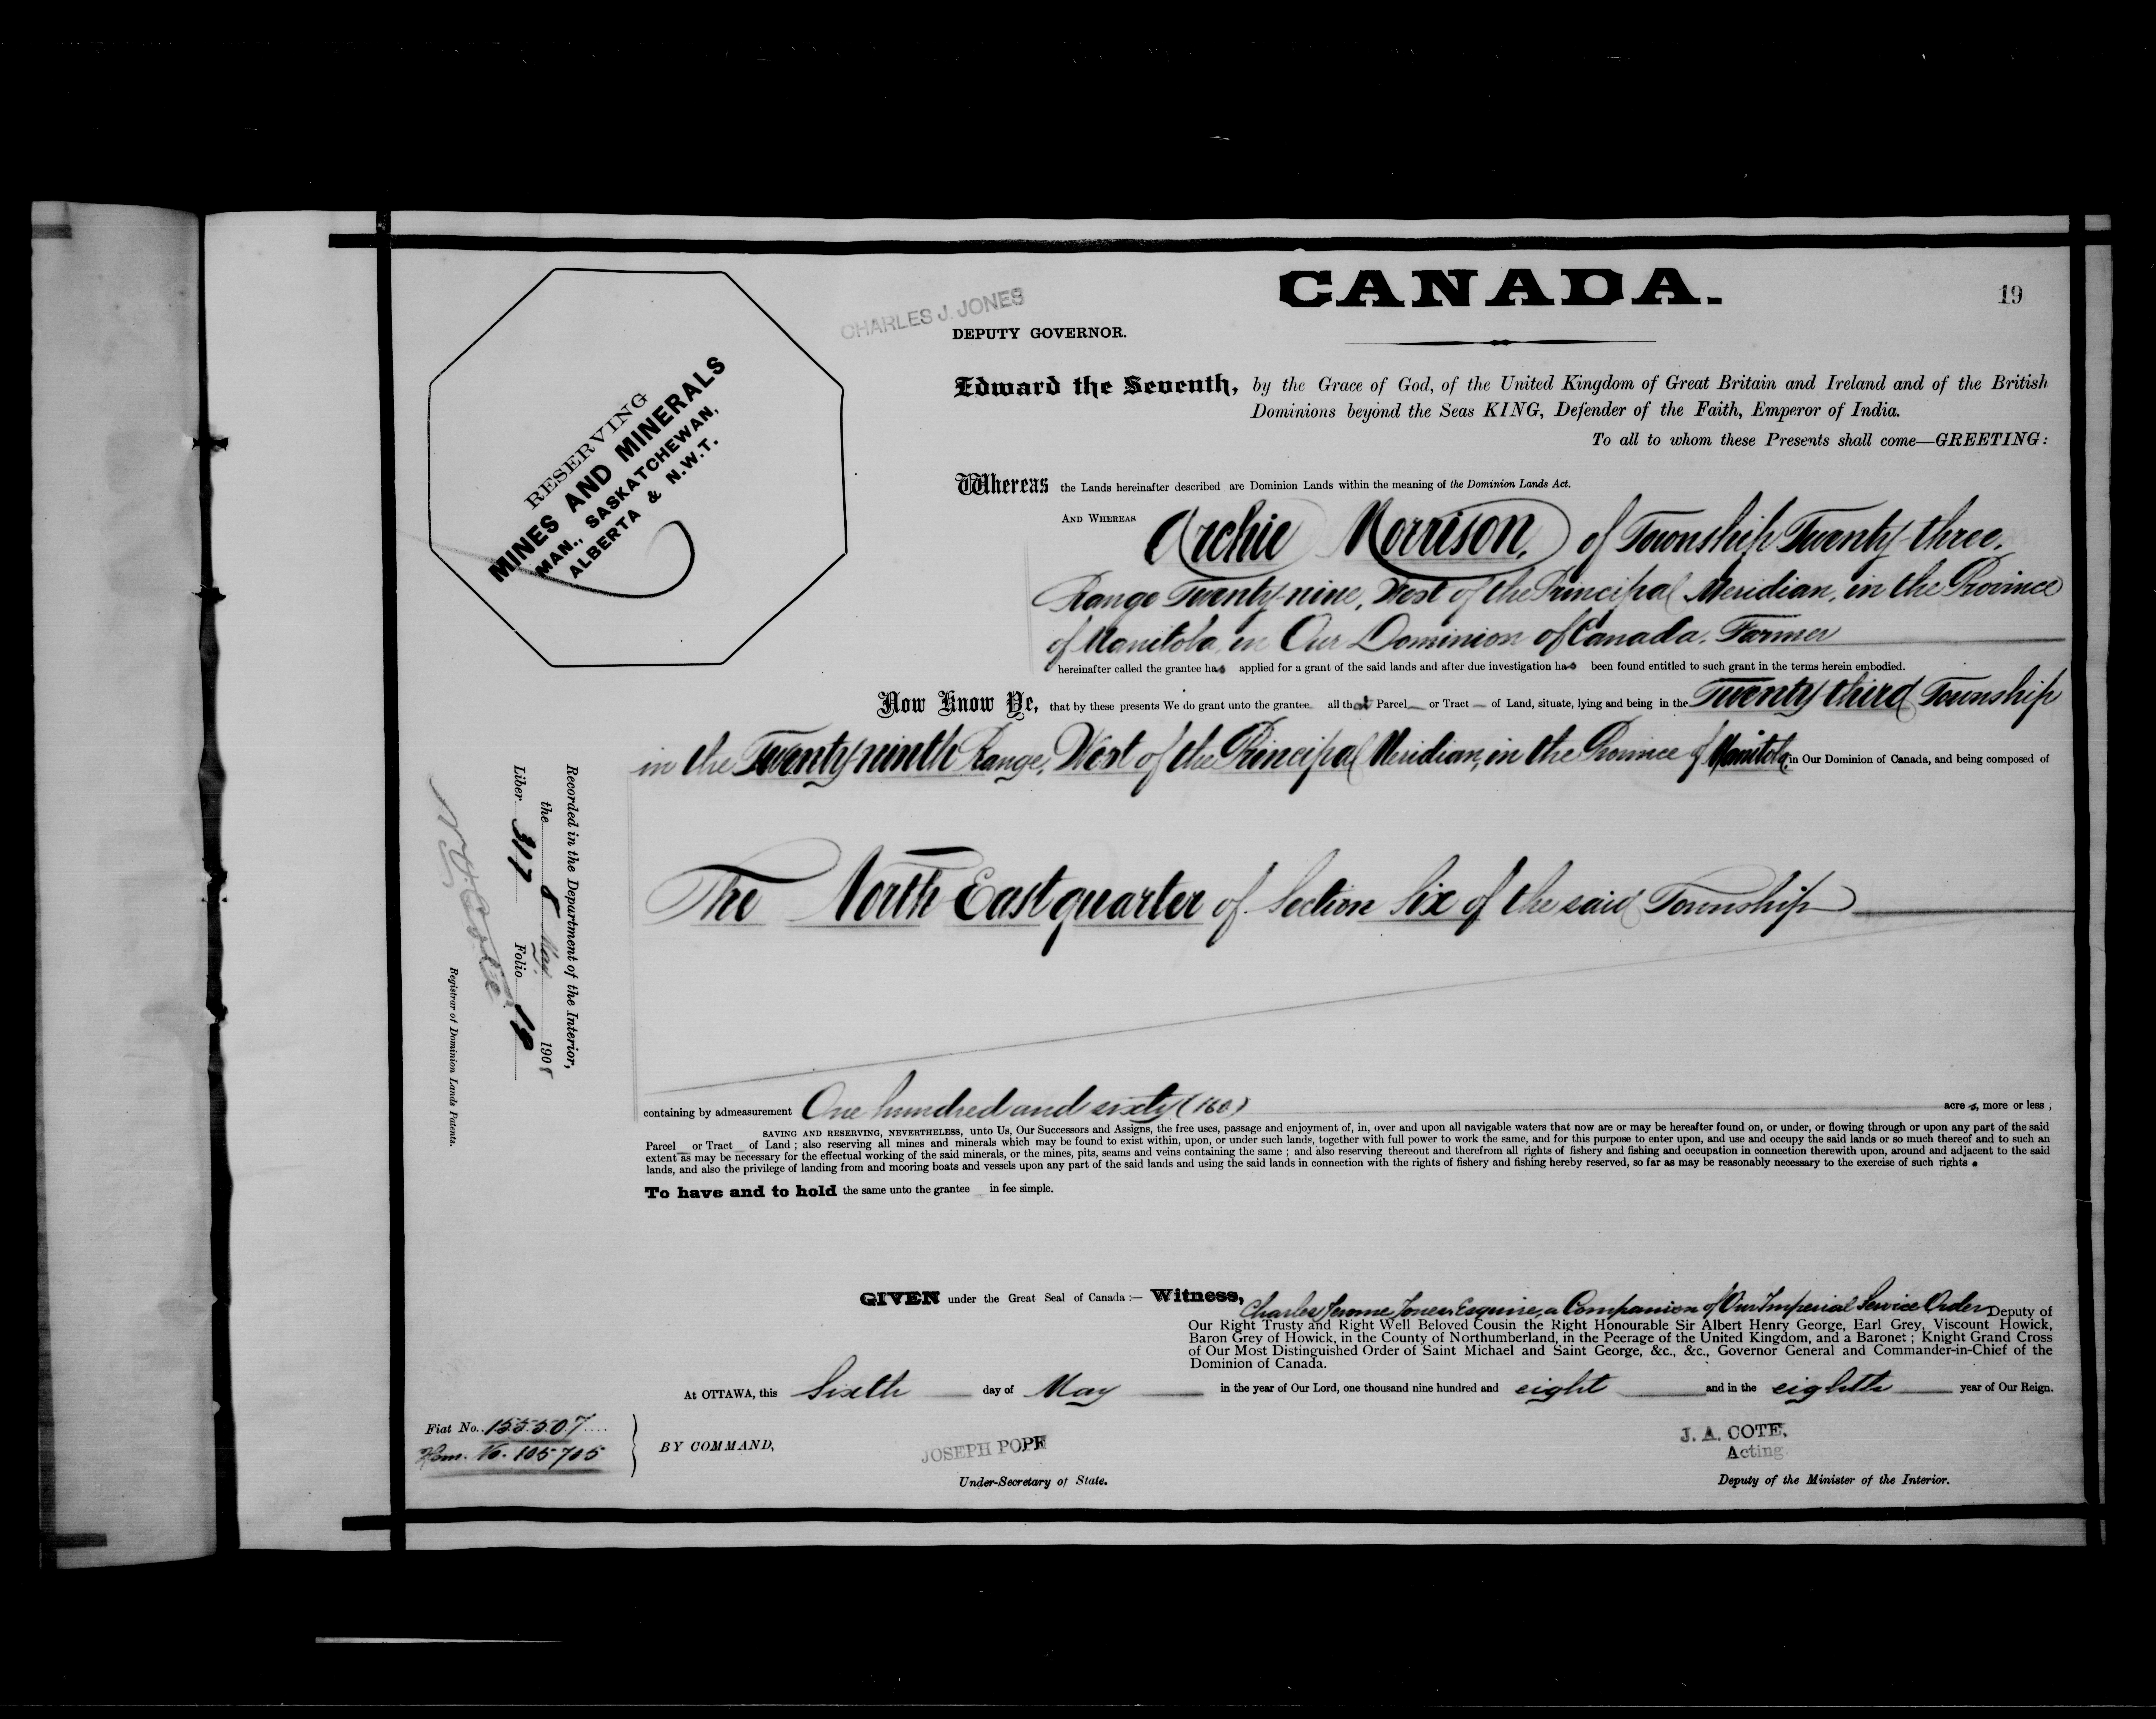 CANADA.
19
CHARLES J. JONES
DEPUTY GOVERNOR.
RESERVING
MINES AND MINERALS
MAN., SASKATCHEWAN,
ALBERTA & N.W.T.
Edward the Seventh, by the Grace of God, of the United Kingdom of Great Britain and Ireland and of the British
Dominions beyond the Seas KING, Defender of the Faith, Emperor of India.
To all to whom these Presents shall come—GREETING:
Whereas the Lands hereinafter described are Dominion Lands within the meaning of the Dominion Lands Act.
AND WHEREAS Archie Morrison, of Township Twenty-three,
Range Twenty-nine, West of the Principal Meridian, in the Province
of Manitoba, in Our Dominion of Canada, Farmer
hereinafter called the grantee has applied for a grant of the said lands and after due investigation has been found entitled to such grant in the terms herein embodied.
Now Know Ye, that by these presents We do grant unto the grantee all that Parcel or Tract of Land, situate, lying and being in the Twenty-third Township
in the Twenty-ninth Range, West of the Principal Meridian, in the Province of Manitoba, in Our Dominion of Canada, and being composed of
The North East quarter of Section Six of the said Township
containing by admeasurement One hundred and sixty (160) acres, more or less ;
SAVING AND RESERVING, NEVERTHELESS, unto Us, Our Successors and Assigns, the free uses, passage and enjoyment of, in, over and upon all navigable waters that now are or may be hereafter found on, or under, or flowing through or upon any part of the said
Parcel or Tract of Land ; also reserving all mines and minerals which may be found to exist within, upon, or under such lands, together with full power to work the same, and for this purpose to enter upon, and use and occupy the said lands or so much thereof and to such an
extent as may be necessary for the effectual working of the said minerals, or the mines, pits, seams and veins containing the same ; and also reserving thereout and therefrom all rights of fishery and fishing and occupation in connection therewith upon, around and adjacent to the said
lands, and also the privilege of landing from and mooring boats and vessels upon any part of the said lands and using the said lands in connection with the rights of fishery and fishing hereby reserved, so far as may be reasonably necessary to the exercise of such rights.
To have and to hold the same unto the grantee in fee simple.
GIVEN under the Great Seal of Canada :— Witness, Charles Jerome Jones, Esquire, a Companion of Our Imperial Service Order, Deputy of
Our Right Trusty and Right Well Beloved Cousin the Right Honourable Sir Albert Henry George, Earl Grey, Viscount Howick,
Baron Grey of Howick, in the County of Northumberland, in the Peerage of the United Kingdom, and a Baronet ; Knight Grand Cross
of Our Most Distinguished Order of Saint Michael and Saint George, &c., &c., Governor General and Commander-in-Chief of the
Dominion of Canada.
At OTTAWA, this Sixth day of May in the year of Our Lord, one thousand nine hundred and eight and in the eighth year of Our Reign.
Fiat No. 155507
Hom. No. 105705
BY COMMAND,
JOSEPH POPE
Under-Secretary of State.
J. A. COTE,
Acting
Deputy of the Minister of the Interior.
Recorded in the Department of the Interior,
the 8 May 1908
Liber 317 Folio 19
Registrar of Dominion Lands Patents.